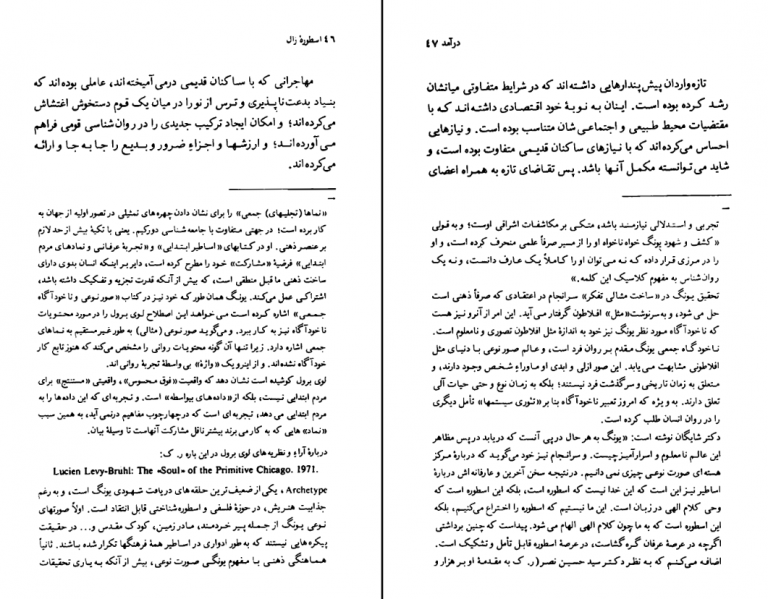 ۴۶ اسطورهٔ زال
مهاجرانی که با ساکنان قدیمی درمی‌آمیخته‌اند، عاملی بوده‌اند که
بنیاد بدعت‌ناپذیری و ترس از نو را در میان یک قوم دستخوش اغتشاش
می‌کرده‌اند؛ و امکان ایجاد ترکیب جدیدی را در روان‌شناسی قومی فراهم
می‌آورده‌اند؛ و ارزشها و اجزاءِ ضرور و بدیع را جا به جا و ارائه
می‌کرده‌اند.
«نماها (تجلیهای) جمعی» را برای نشان دادن چهره‌های تمثیلی در تصور اولیه از جهان به
کار برده است؛ در جهتی متفاوت با جامعه‌شناسی دورکیم. یعنی با تکیهٔ بیش از حد لازم
بر عنصر ذهنی. او در کتابهای «اساطیر ابتدایی» و «تجربهٔ عرفانی و نمادهای مردم
ابتدایی» فرضیهٔ «مشارکت» خود را مطرح کرده است، دایر بر اینکه انسان بدوی دارای
ساخت ذهنی ما قبل منطقی است، که بیش از آنکه قدرت تجزیه و تفکیک داشته باشد،
اشتراکی عمل می‌کند. یونگ همان طور که خود نیز در کتاب «صور نوعی و ناخودآگاه
جمعی» اشاره کرده است می‌خواهد این اصطلاح لوی برول را در مورد محتویات
ناخودآگاه نیز به کار برد. و می‌گوید صور نوعی (مثالی) به طور غیرمستقیم به نماهای
جمعی اشاره دارد. زیرا تنها آن گونه محتویات روانی را مشخص می‌کند که هنوز تابع کار
خودآگاه نشده‌اند. و از اینرو یک «واژهٔ» بی‌واسطهٔ تجربهٔ روانی اند.
لوی برول کوشیده است نشان دهد که واقعیت «فوق محسوس»، واقعیتی «مستنتج» برای
مردم ابتدایی نیست، بلکه از «داده‌های بیواسطه» است. و تجربه‌ای که این داده‌ها را به
مردم ابتدایی می‌دهد، تجربه‌ای است که در چهارچوب مفاهیم درنمی‌آید، به همین سبب
«نماد» هایی که به کار می‌برند بیشتر ناقل مشارکت آنهاست تا وسیلهٔ بیان.
دربارهٔ آراءِ و نظریه‌های لوی برول در این باره ر. ک:
Lucien Levy-Bruhl: The «Soul» of the Primitive Chicago. 1971.
Archetype، یکی از ضعیف‌ترین حلقه‌های دریافت شهودی یونگ است، و به رغم
جذابیت هنریش، در حوزهٔ فلسفی و اسطوره‌شناختی قابل انتقاد است. اولاً صورتهای
نوعی یونگ از جمله پیر خردمند، مادر زمین، کودک مقدس و... در حقیقت
پیکره‌هایی نیستند که به طور ادواری در اساطیر همهٔ فرهنگها تکرار شده باشند. ثانیاً
هماهنگی ذهنی با مفهوم یونگی صورت نوعی، بیش از آنکه به یاری تحقیقات
درآمد ۴۷
تازه‌واردان پیش‌پندارهایی داشته‌اند که در شرایط متفاوتی میانشان
رشد کرده بوده است. اینان به نوبهٔ خود اقتصادی داشته‌اند که با
مقتضیات محیط طبیعی و اجتماعی‌شان متناسب بوده است. و نیازهایی
احساس می‌کرده‌اند که با نیازهای ساکنان قدیمی متفاوت بوده است، و
شاید می‌توانسته مکمل آنها باشد. پس تقاضای تازه به همراه اعضای
تجربی و استدلالی نیازمند باشد، متکی بر مکاشفات اشراقی اوست؛ و به قولی
«کشف و شهود یونگ خواه ناخواه او را از مسیر صرفاً علمی منحرف کرده است، و او
را در مرزی قرار داده که نه می‌توان او را کاملاً یک عارف دانست، و نه یک
روان‌شناس به مفهوم کلاسیک این کلمه.»
تحقیق یونگ در «ساخت مثالی تفکر» سرانجام در اعتقادی که صرفاً ذهنی است
حل می‌شود، و به سرنوشت «مثل» افلاطون گرفتار می‌آید. این امر از آنرو نیز هست
که ناخودآگاه مورد نظر یونگ نیز خود به اندازهٔ مثل افلاطون تصوری و نامعلوم است.
ناخودآگاه جمعی یونگ مقدم بر روان فرد است، و عالم صور نوعی با دنیای مثل
افلاطونی مشابهت می‌یابد. این صور ازلی و ابدی او ماوراءِ شخص وجود دارند، و
متعلق به زمان تاریخی و سرگذشت فرد نیستند؛ بلکه به زمان نوع و حتی حیات آلی
تعلق دارند. به ویژه که امروز تعبیر ناخودآگاه بنا بر «تئوری سیستمها» تأمل دیگری
را در روان انسان طلب کرده است.
دکتر شایگان نوشته است: «یونگ به هر حال در پی آنست که دریابد در پس مظاهر
این عالم نامعلوم و اسرارآمیز چیست. و سرانجام نیز خود می‌گوید که دربارهٔ مرکز
هسته‌ای صورت نوعی چیزی نمی‌دانیم. در نتیجه سخن آخرین و عارفانه‌اش دربارهٔ
اساطیر نیز این است که این خدا نیست که اسطوره است، بلکه این اسطوره است که
وحی کلام الهی در زبان است. این ما نیستیم که اسطوره را اختراع می‌کنیم، بلکه
این اسطوره است که به ما چون کلام الهی الهام می‌شود. پیداست که چنین برداشتی
اگرچه در عرصهٔ عرفان گره‌گشاست، در عرصهٔ اسطوره قابل تأمل و تشکیک است.
اضافه می‌کنم که به نظر دکتر سید حسین نصر (ر. ک به مقدمهٔ او بر هزار و